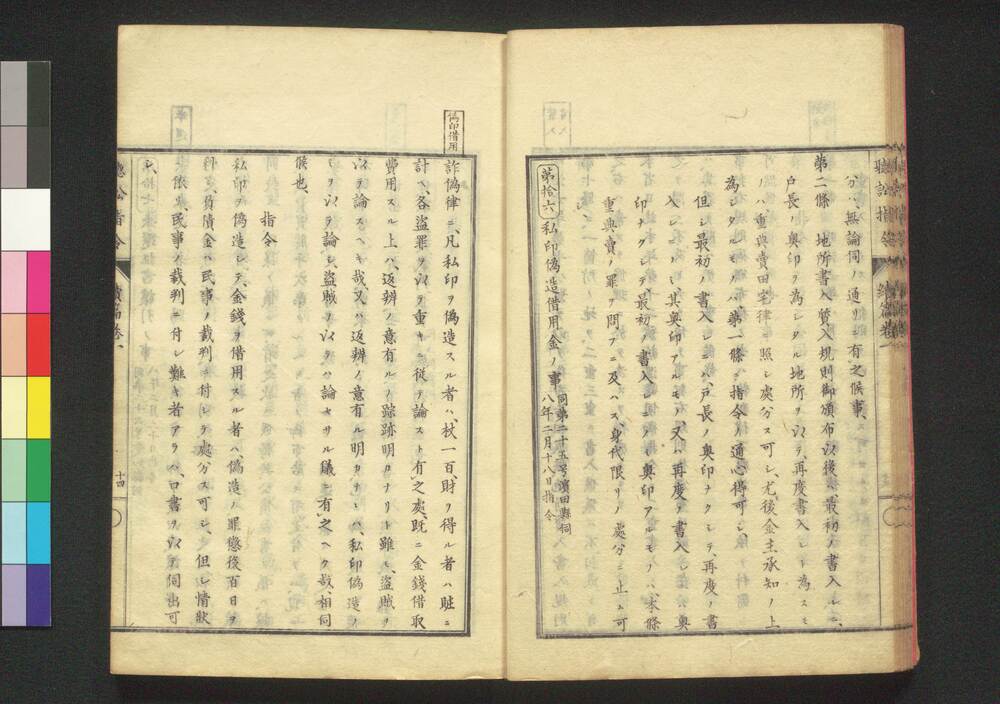 分ハ無論伺ノ通リニ有之候事、
第二條 地所書入質入規則御頒布以後、最初ノ書入ニ、
戸長ノ奥印ヲ為シタル地所ヲ以テ、再度書入レト為スモ
ノハ重典賣田宅律ニ照シ處分ス可シ、尤後金主承知ノ上
為シタルモノハ第一條ノ指令ノ通心得可シ、
但シ最初ノ書入レニハ戸長ノ奥印ナクシテ、再度ノ書
入レニノミ其奥印アルモノ、又ハ再度ノ書入レニ奥
印ナクシテ、最初ノ書入レニノミ奥印アルモノハ、本條
重典賣ノ罪ヲ問フニ及ハス、身代限リノ處分ニ止ム可
第拾六 私印偽造借用金ノ事 同第二十五号濱田縣伺 八年二月十八日指令
偽印借用
詐偽律ニ、凡私印ヲ偽造スル者ハ、杖一百財ヲ得ル者ハ賍ニ
計ヘ、各盗罪ヲ以テ重キニ従テ論スト有之處、既ニ金錢借取
費用スル上ハ、返辨ノ意有ルノ踪跡明カナリト雖モ、盗賊ヲ
以テ論スヘキ哉、又ハ返辨ノ意有ル明カナレハ、私印偽造ノ
ミヲ以テ論シ、盗賊ヲ以テハ論セサル儀ニ有之ヘク哉、相伺
候也、
指令
私印ヲ偽造シテ、金錢ヲ借用スル者ハ、偽造ノ罪懲役百日ヲ
科シ、負債金ハ民事ノ裁判ニ付シテ處分ス可シ、但シ情狀
ニ依リ民事ノ裁判ニ付シ難キ者アラハ、口書ヲ以テ伺出可
シ、
十四